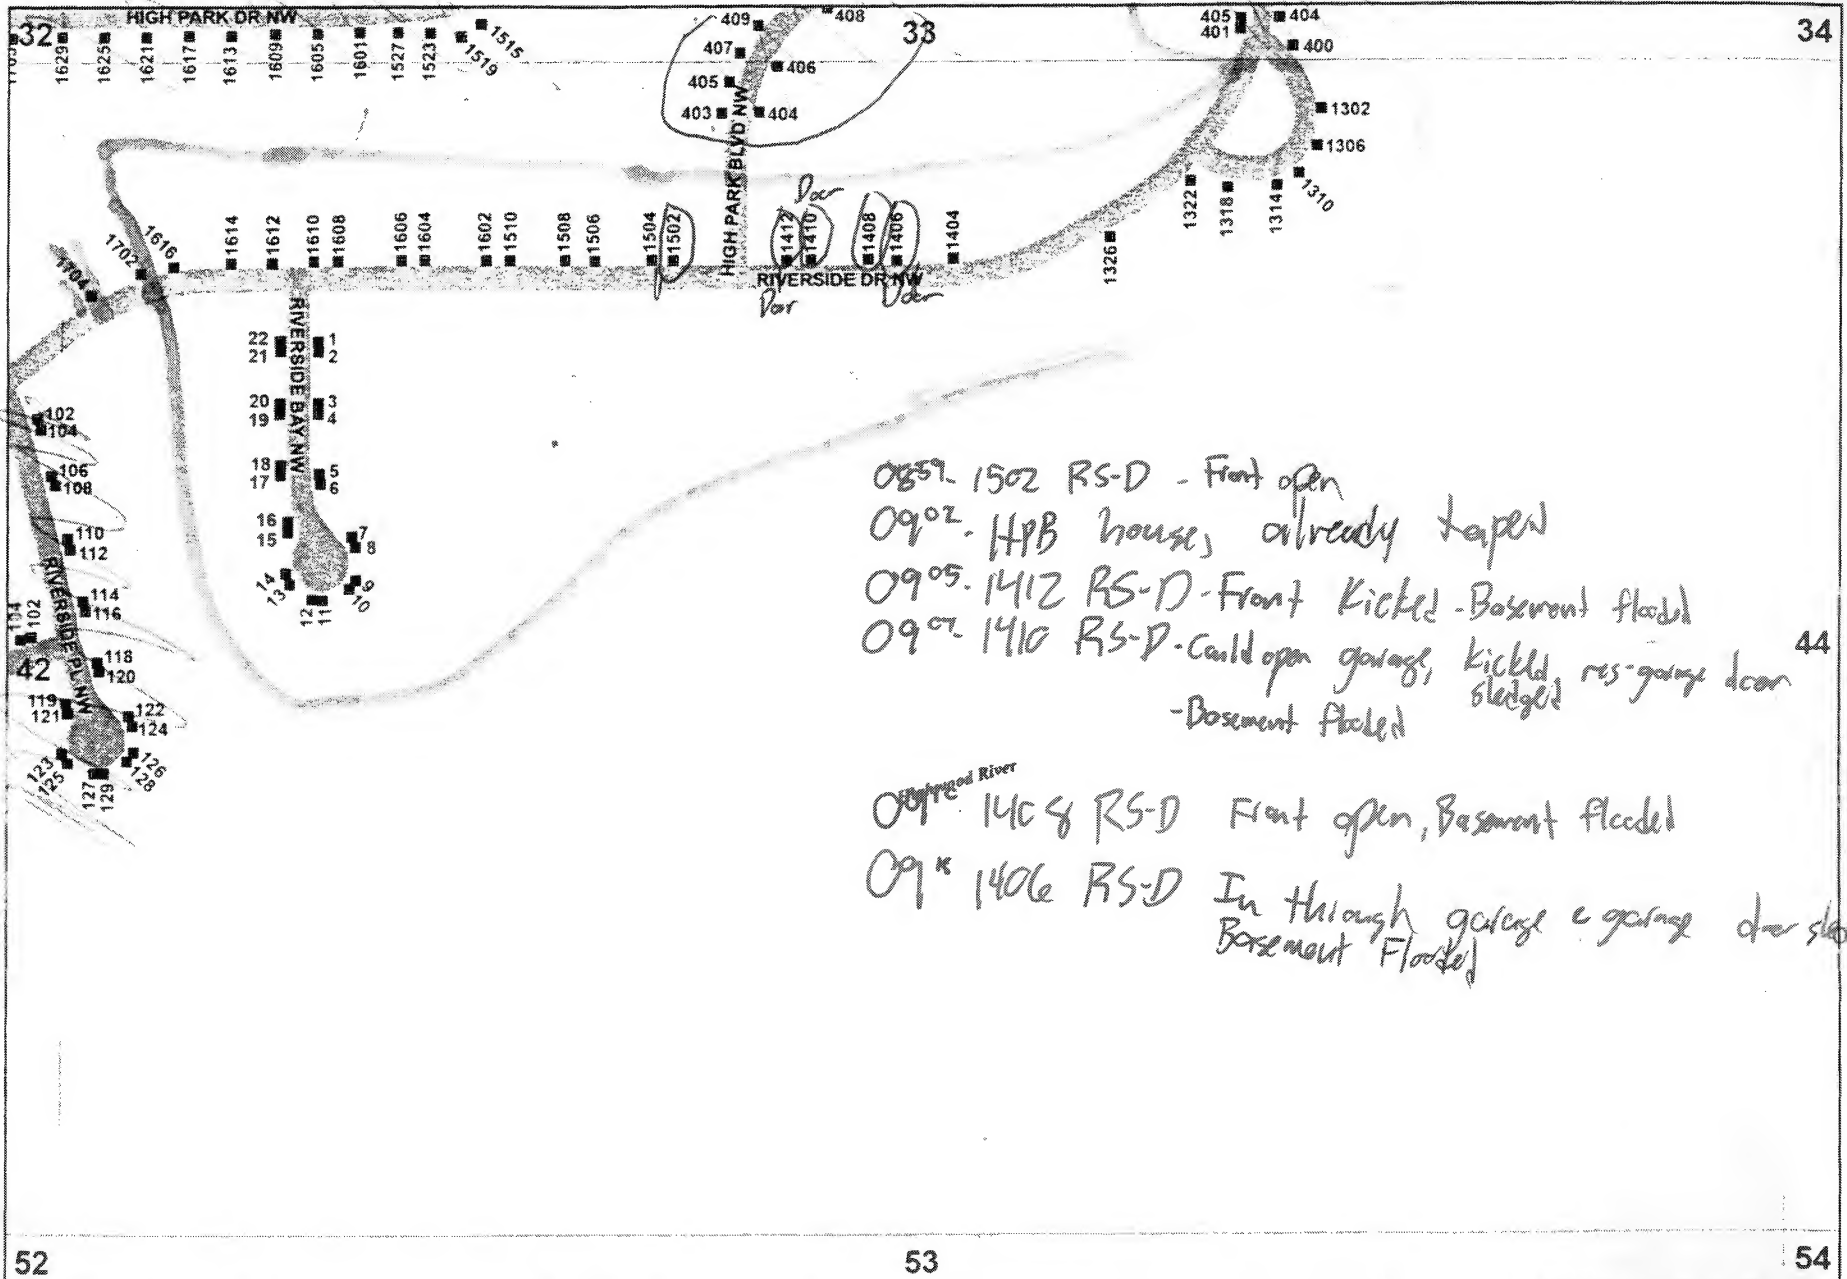 HIGH PARK DR NW
32
33
34
1629
1625
1621
1617
1613
1609
1605
1601
1527
1523
1519
1515
409
408
407
406
405
404
403
HIGH PARK BLVD NW
405
401
404
400
1302
1306
1310
1314
1318
1322
1326
1704
1702
1616
1614
1612
1610
1608
1606
1604
1602
1510
1508
1506
1504
1502
1412
1410
1408
1406
1404
RIVERSIDE DR NW
Door
RIVERSIDE BAY NW
22
21
1
2
20
19
3
4
18
17
5
6
16
15
7
8
14
13
12
11
10
9
102
104
106
108
110
112
RIVERSIDE PL NW
114
116
104
102
42
118
120
119
121
122
124
123
125
127
129
126
128
44
0859- 1502 RS-D - Front open
0902- HPB houses already taped
0905- 1412 RS-D - Front Kicked - Basement flooded
1410 RS-D - Could open garage, kicked, sledged res-garage door
- Basement flooded
River
1408 RS-D Front open, Basement flooded
1406 RS-D In through garage garage door
Basement Flooded
52
53
54